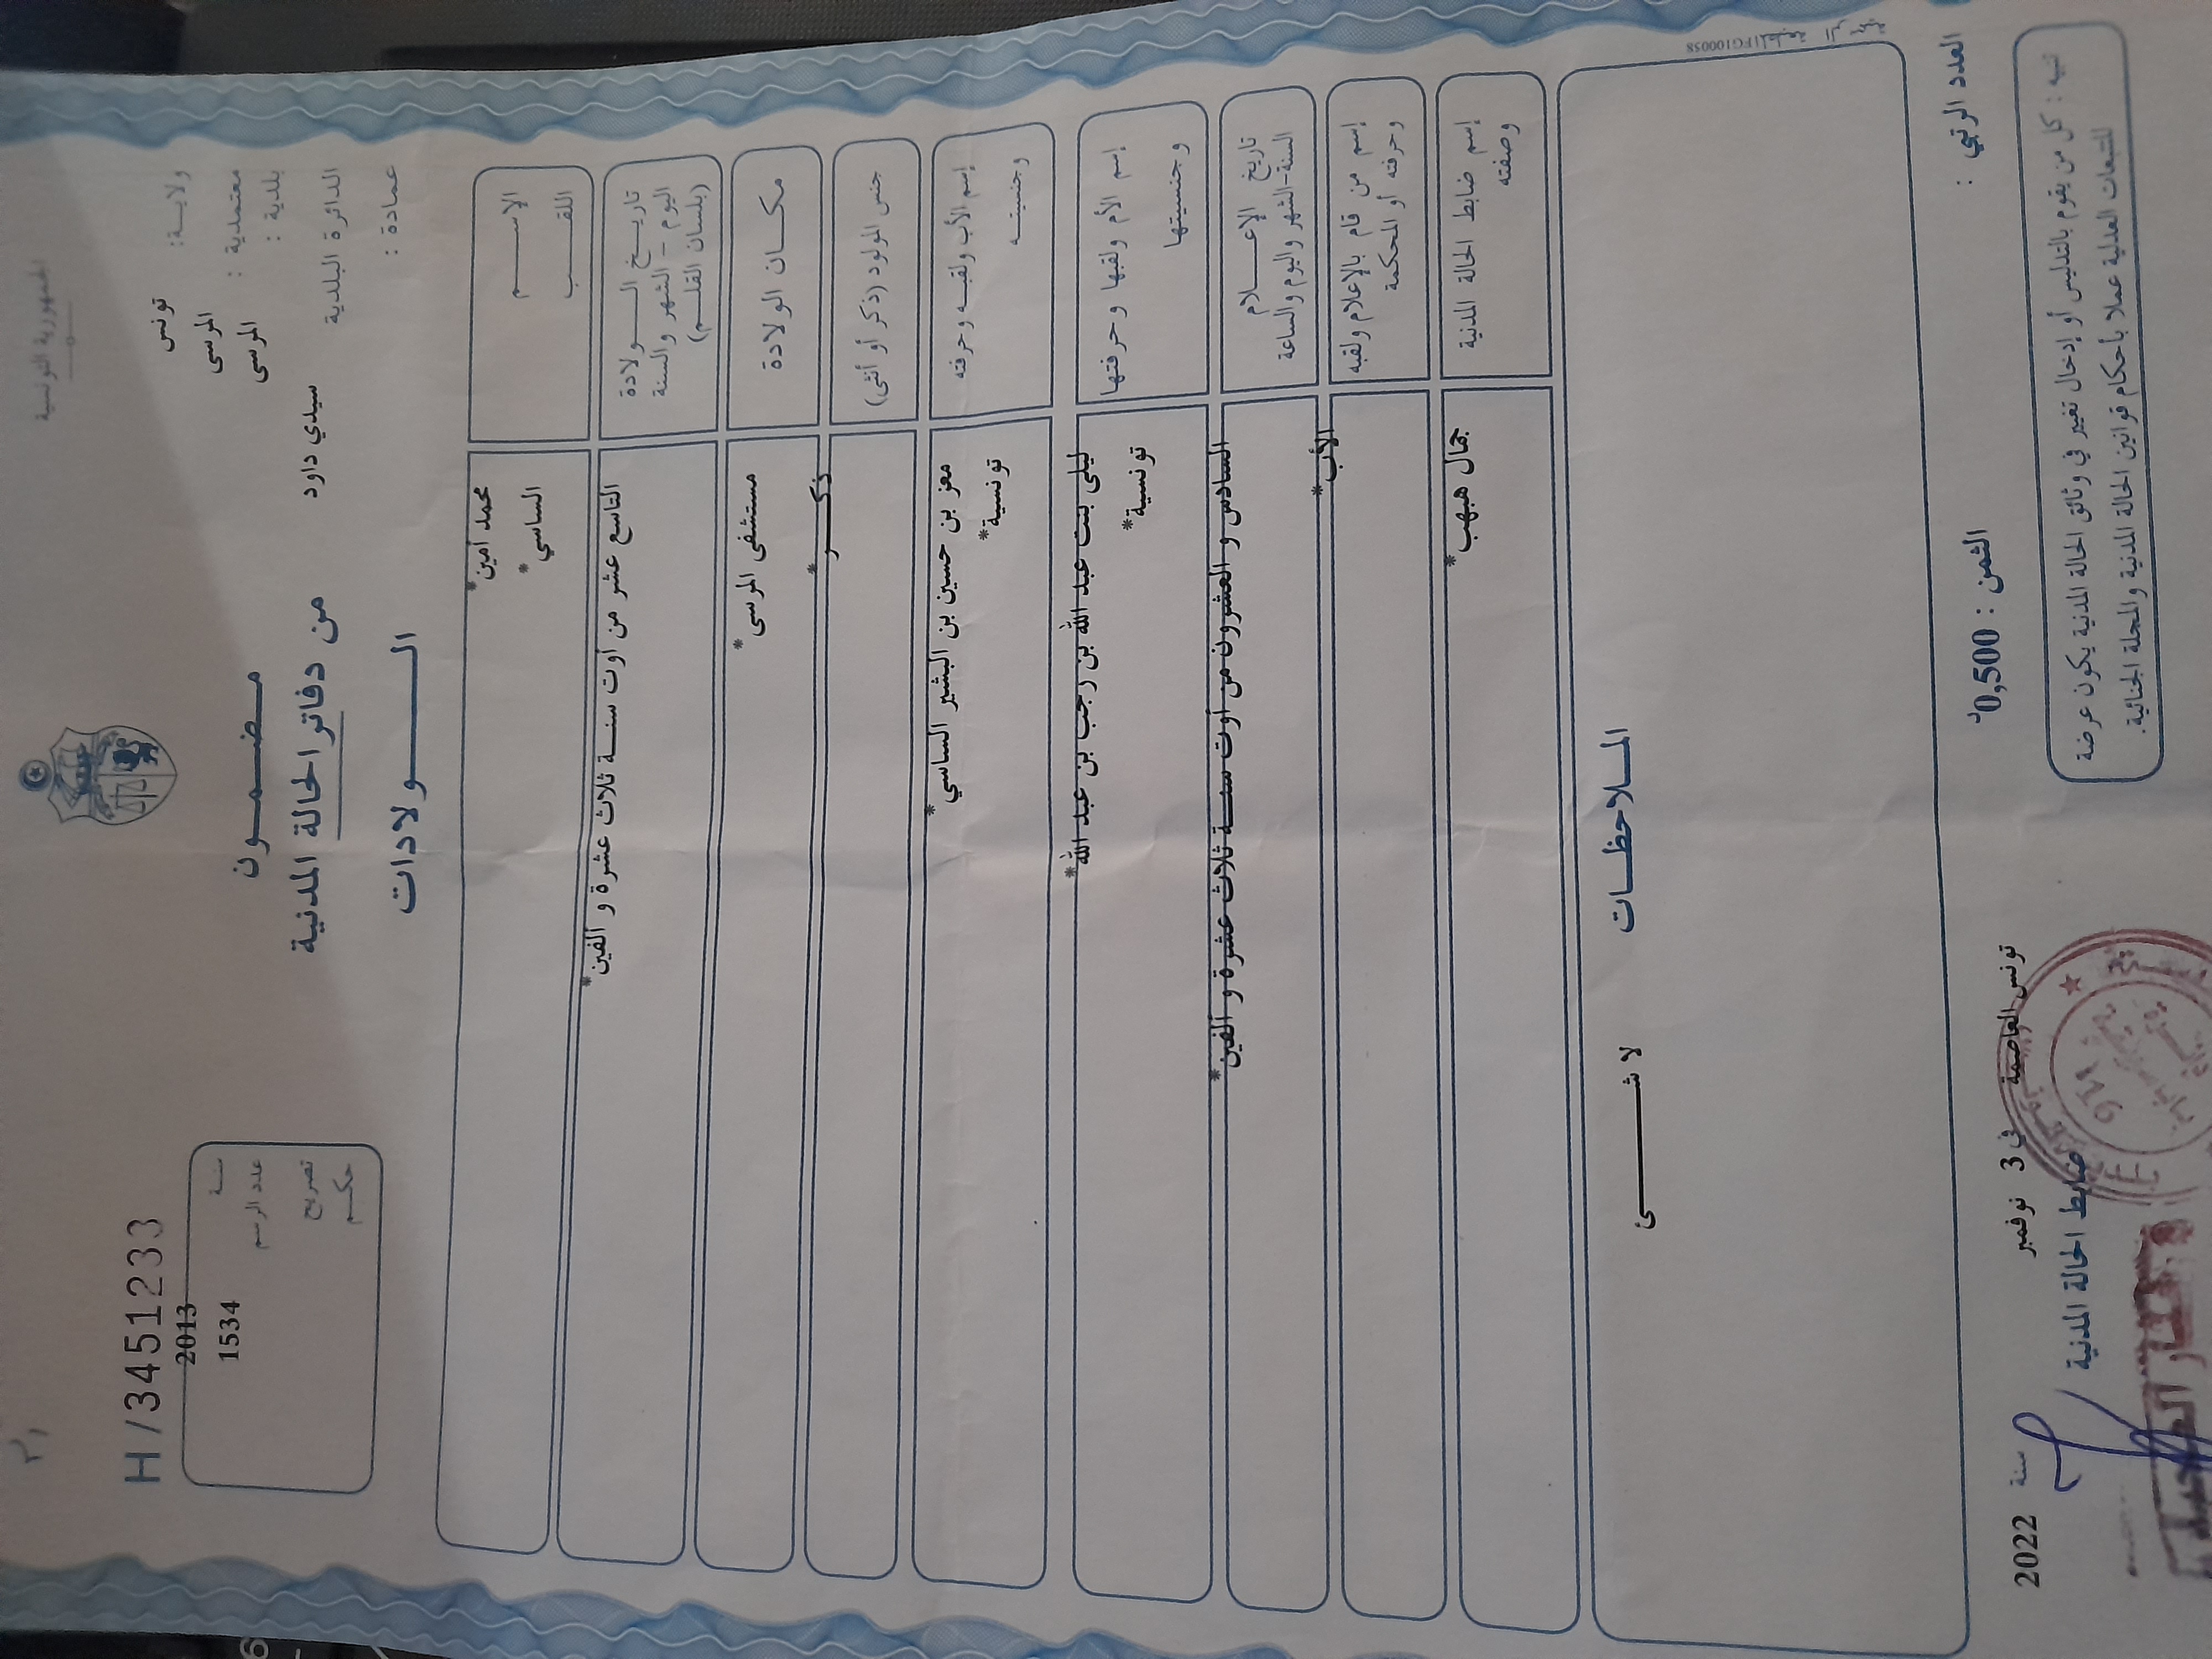 الجمهورية التونسية
H/3451233
ولاية: تونس
معتمدية : المرسى
بلدية : المرسى
الدائرة البلدية سيدي داود
عمادة :
سنة 2013
عدد الرسم 1534
تصريح
حكم
مضمون
من دفاتر الحالة المدنية
الولادات
الإسم محمد أمين*
اللقب الساسي*
تاريخ الولادة
اليوم - الشهر والسنة
(بلسان القلم)
التاسع عشر من أوت سنة ثلاث عشرة و ألفين*
مكان الولادة مستشفى المرسى*
جنس المولود (ذكر أو أنثى) ذكر*
إسم الأب ولقبه وحرفته معز بن حسين بن البشير الساسي*
وجنسيته تونسية*
إسم الأم ولقبها وحرفتها ليلى بنت عبد الله بن رجب بن عبد الله*
وجنسيتها تونسية*
تاريخ الإعلام
السنة-الشهر واليوم والساعة
السادس و العشرون من أوت سنة ثلاث عشرة و ألفين*
إسم من قام بالإعلام ولقبه الأب*
وحرفته أو المحكمة
إسم ضابط الحالة المدنية جمال هبهب*
وصفته
الملاحظات
لا شئ
FG100058
العدد الرتبي :
الثمن : 0,500د
تونس العاصمة في 3 نوفمبر سنة 2022
ضابط الحالة المدنية
تنبيه : كل من يقوم بالتدليس أو إدخال تغيير في وثائق الحالة المدنية يكون عرضة
للتتبعات العدلية عملا بأحكام قوانين الحالة المدنية والمجلة الجنائية.